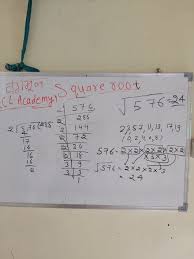 Square root
(L Academy)
√576 = 24
2 | 576
2 | 288
2 | 144
2 | 72
2 | 36
2 | 18
3 | 9
3 | 3
1
2) 576 (288
17
16
16
16
2,3,5,7,11,13,17,19
(0,2,4,6,8)
576 = 2×2×2×2×2×2
×3×3
√576 = 2×2×2×3
= 24